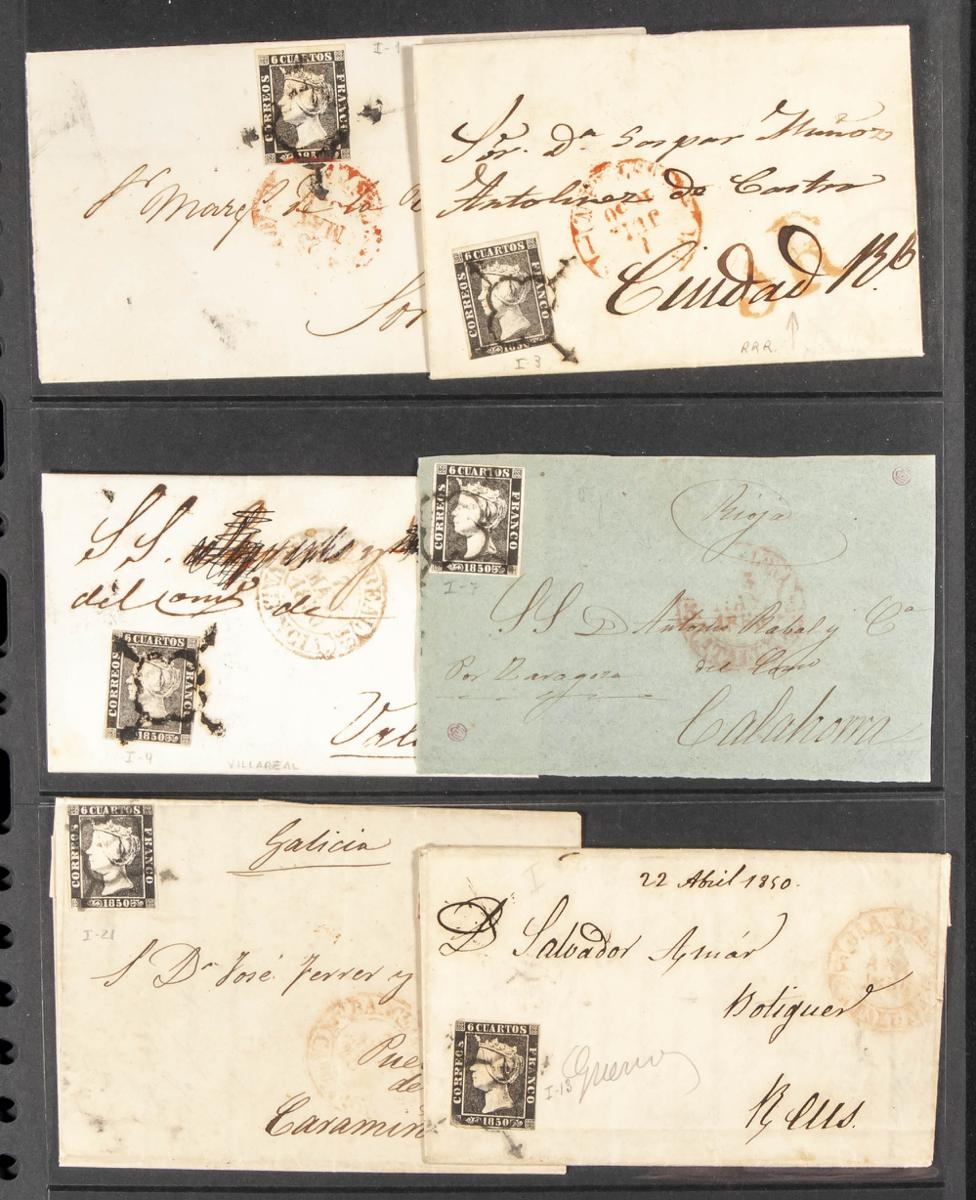 I-1
6 CUARTOS
CORREOS
FRANCO
1850
Sor
Sor. Dn. Gaspar Muñoz
Antolinez de Castro
Ciudad Rl.
6 CUARTOS
CORREOS
FRANCO
1850
I-3
RRR.
S S.
del com. de
6 CUARTOS
CORREOS
FRANCO
1850
Val
I-4
VILLAREAL
6 CUARTOS
CORREOS
FRANCO
1850
I-7
Rioja
S S D Antonio Rabal y Ca
Por Zaragoza del Com
Calahorra
6 CUARTOS
CORREOS
FRANCO
1850
I-21
Galicia
S Dn José Ferrer y
Pue
de
Caramin
22 Abril 1850.
D. Salvador Aymár
Botiguer
Reus.
6 CUARTOS
CORREOS
FRANCO
1850
I-13